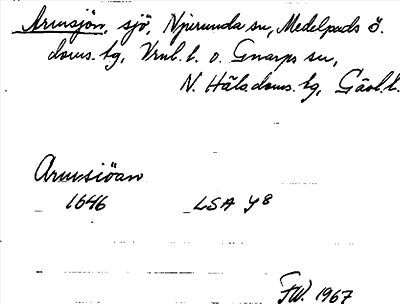 Armsjön, sjö, Njurunda sn, Medelpads ö.
doms. hg, Vrnl. l. o. Gnarps sn,
N. Häls. doms. hg, Gävl. l.
Armsiöan
1646 LSA Y8
FW. 1967